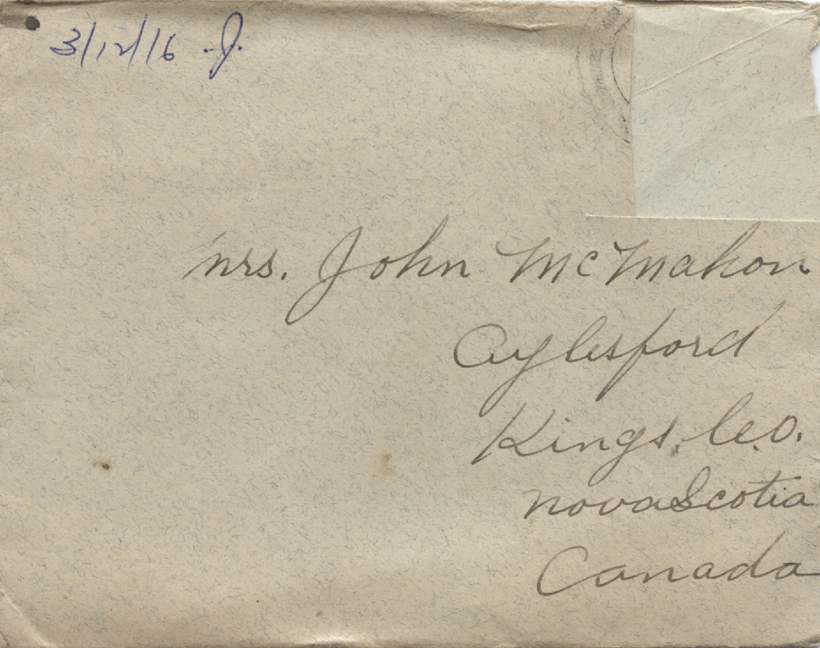 3/12/16 J.
Mrs. John McMahon
Aylesford
Kings. Co.
Nova Scotia
Canada